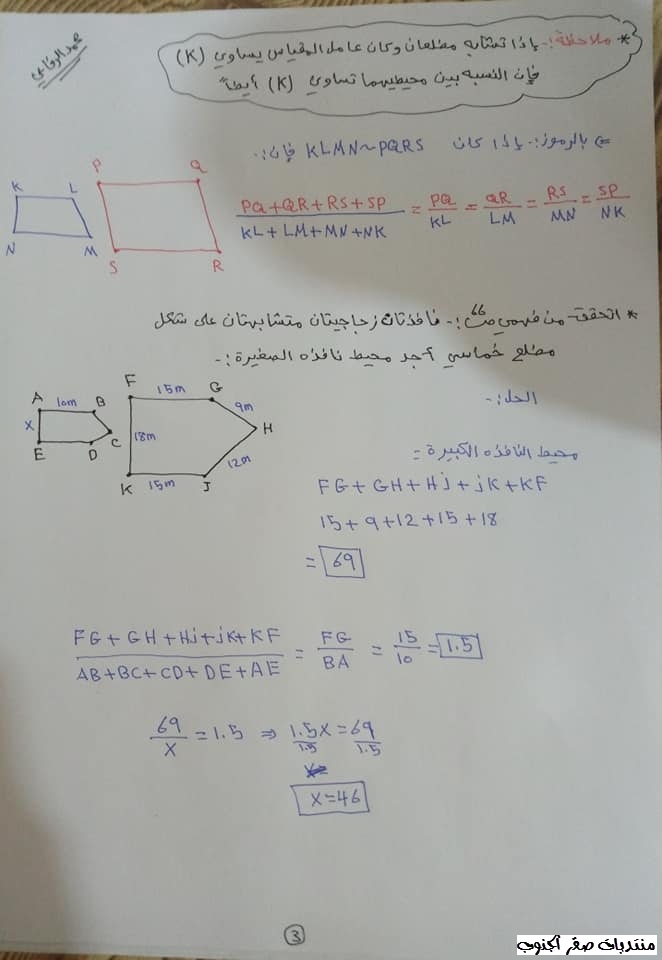 محمد الروابي
* ملاحظة:- إذا تشابه مضلعان وكان عامل المقياس يساوي (K)
فإن النسبه بين محيطيهما تساوي (K) أيضاً
⇐ بالرموز:- إذا كان KLMN~PQRS فإن:-
K L
N M
P Q
S R
PQ+QR+RS+SP / KL+LM+MN+NK = PQ/KL = QR/LM = RS/MN = SP/NK
* اتحقق من فهمي ص66 :- نافذتان زجاجيتان متشابهتان على شكل
مضلع خماسي أجد محيط نافذه الصغيرة:-
الحل:-
A 10m B
X C
E D
F 15m G
9m
18m H
12m
K 15m J
محيط النافذه الكبيرة =
FG+GH+Hj+jK+KF
15+9+12+15+18
= 69
FG+GH+Hj+jK+KF / AB+BC+CD+DE+AE = FG/BA = 15/10 = 1.5
69/X = 1.5 ⇒ 1.5X/1.5 = 69/1.5
X=46
3
منتديات صقر الجنوب